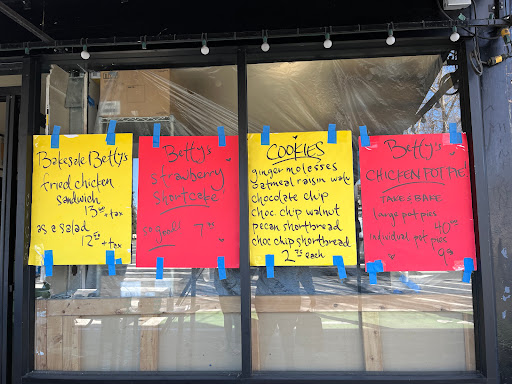 Bakesale Betty's
fried chicken
sandwich
13⁵⁰ + tax
as a salad
12⁵⁰ + tax
Betty's
strawberry
shortcake
so good!
7⁵⁰
COOKIES
ginger molasses
oatmeal raisin walnut
chocolate chip
choc. chip walnut
pecan shortbread
choc chip shortbread
each
Betty's
CHICKEN POT PIE
TAKE & BAKE
large pot pies
40
individual pot pies
9